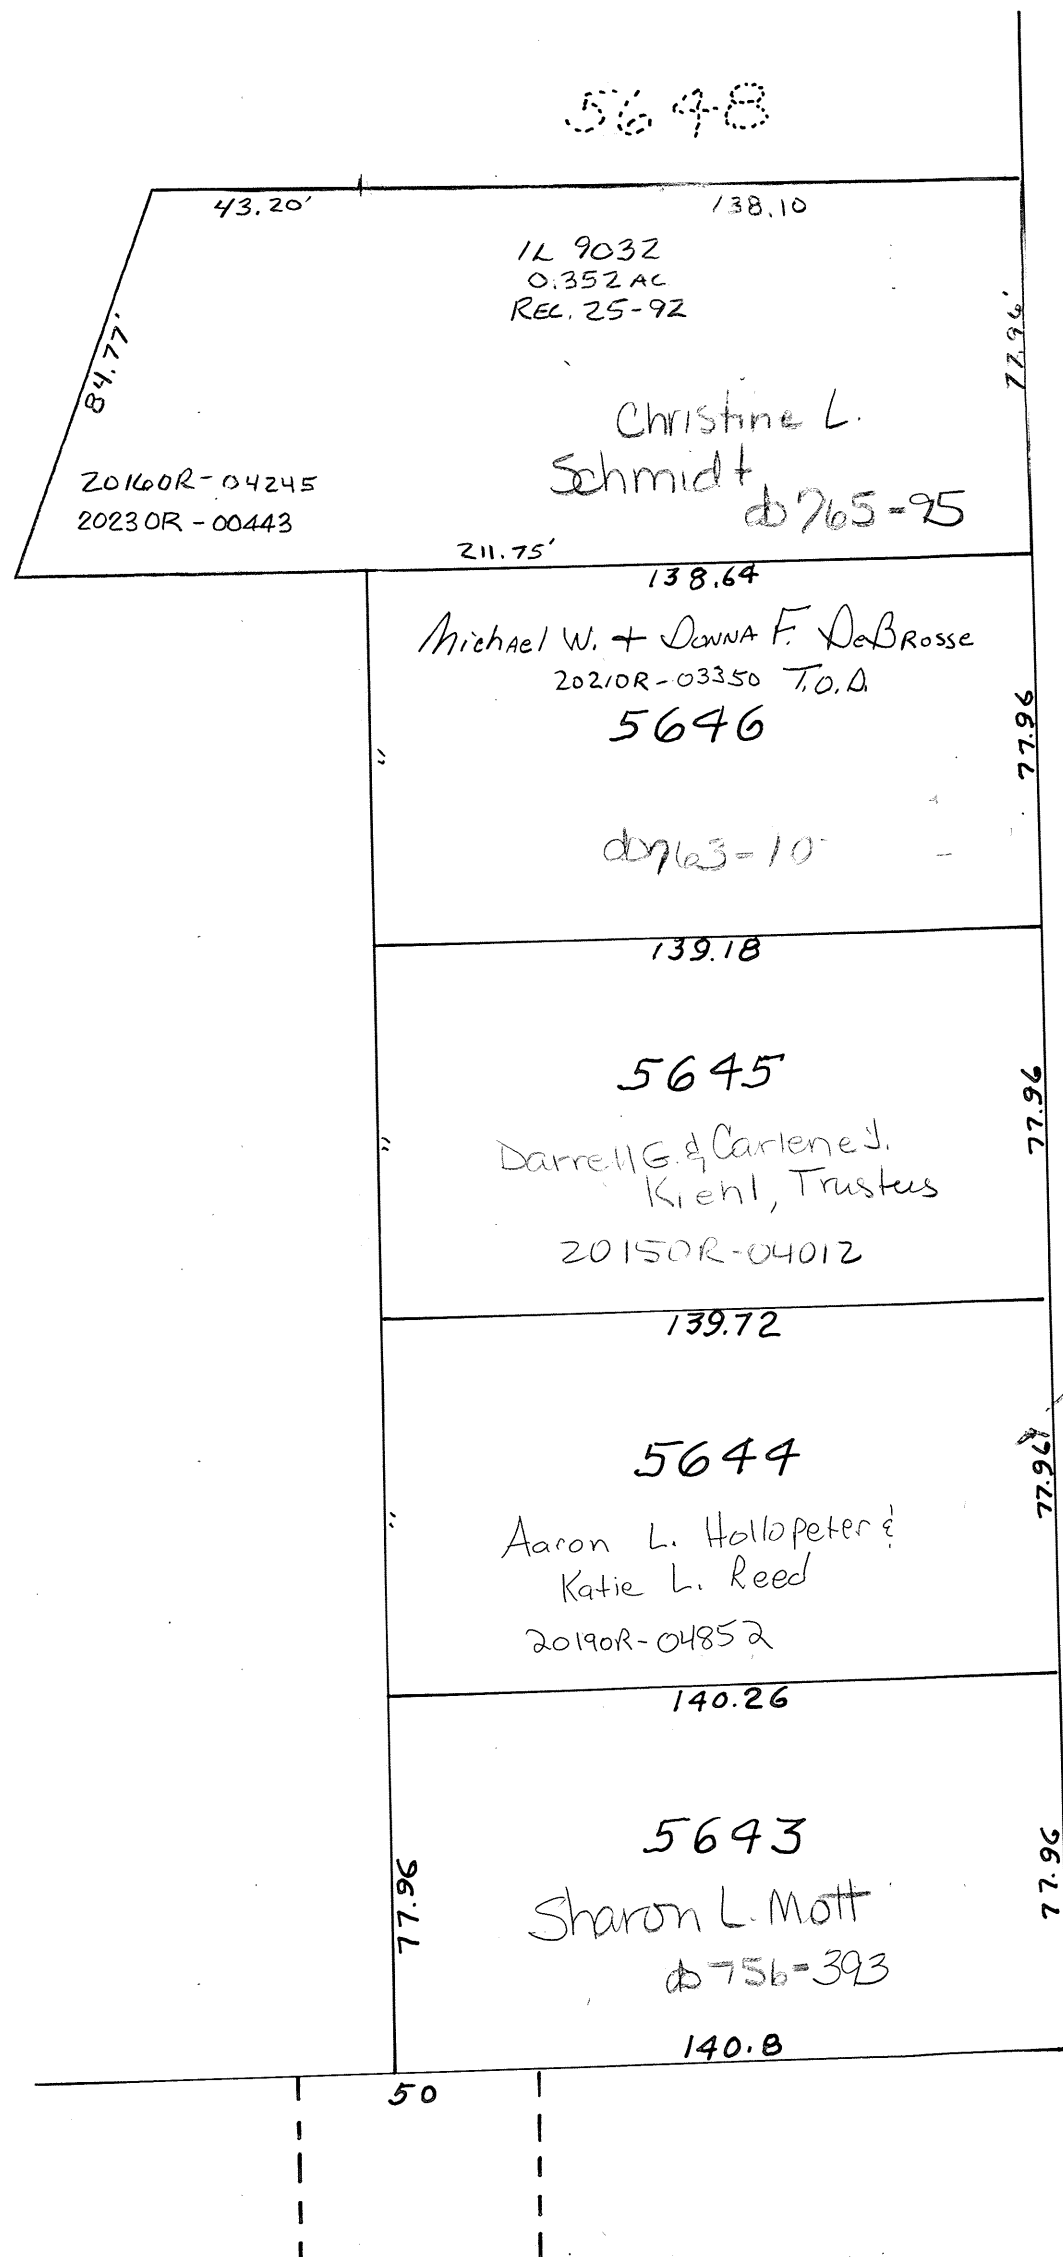 5648
43.20'
138.10
IL 9032
0.352 AC
REC. 25-92
84.77'
77.96'
Christine L.
Schmidt
db 765-95
2016OR-04245
2023OR-00443
211.75'
138.64
Michael W. + DONNA F. DeBROSSE
2021OR-03350 T.O.D.
5646
"
77.96
db763-10
139.18
5645
77.96
"
Darrell G. & Carlene J.
Kiehl, Trustees
2015OR-04012
139.72
5644
77.96
"
Aaron L. Hollopeter &
Katie L. Reed
2019OR-04852
140.26
5643
77.96
77.96
Sharon L. Mott
db 756-393
140.8
50